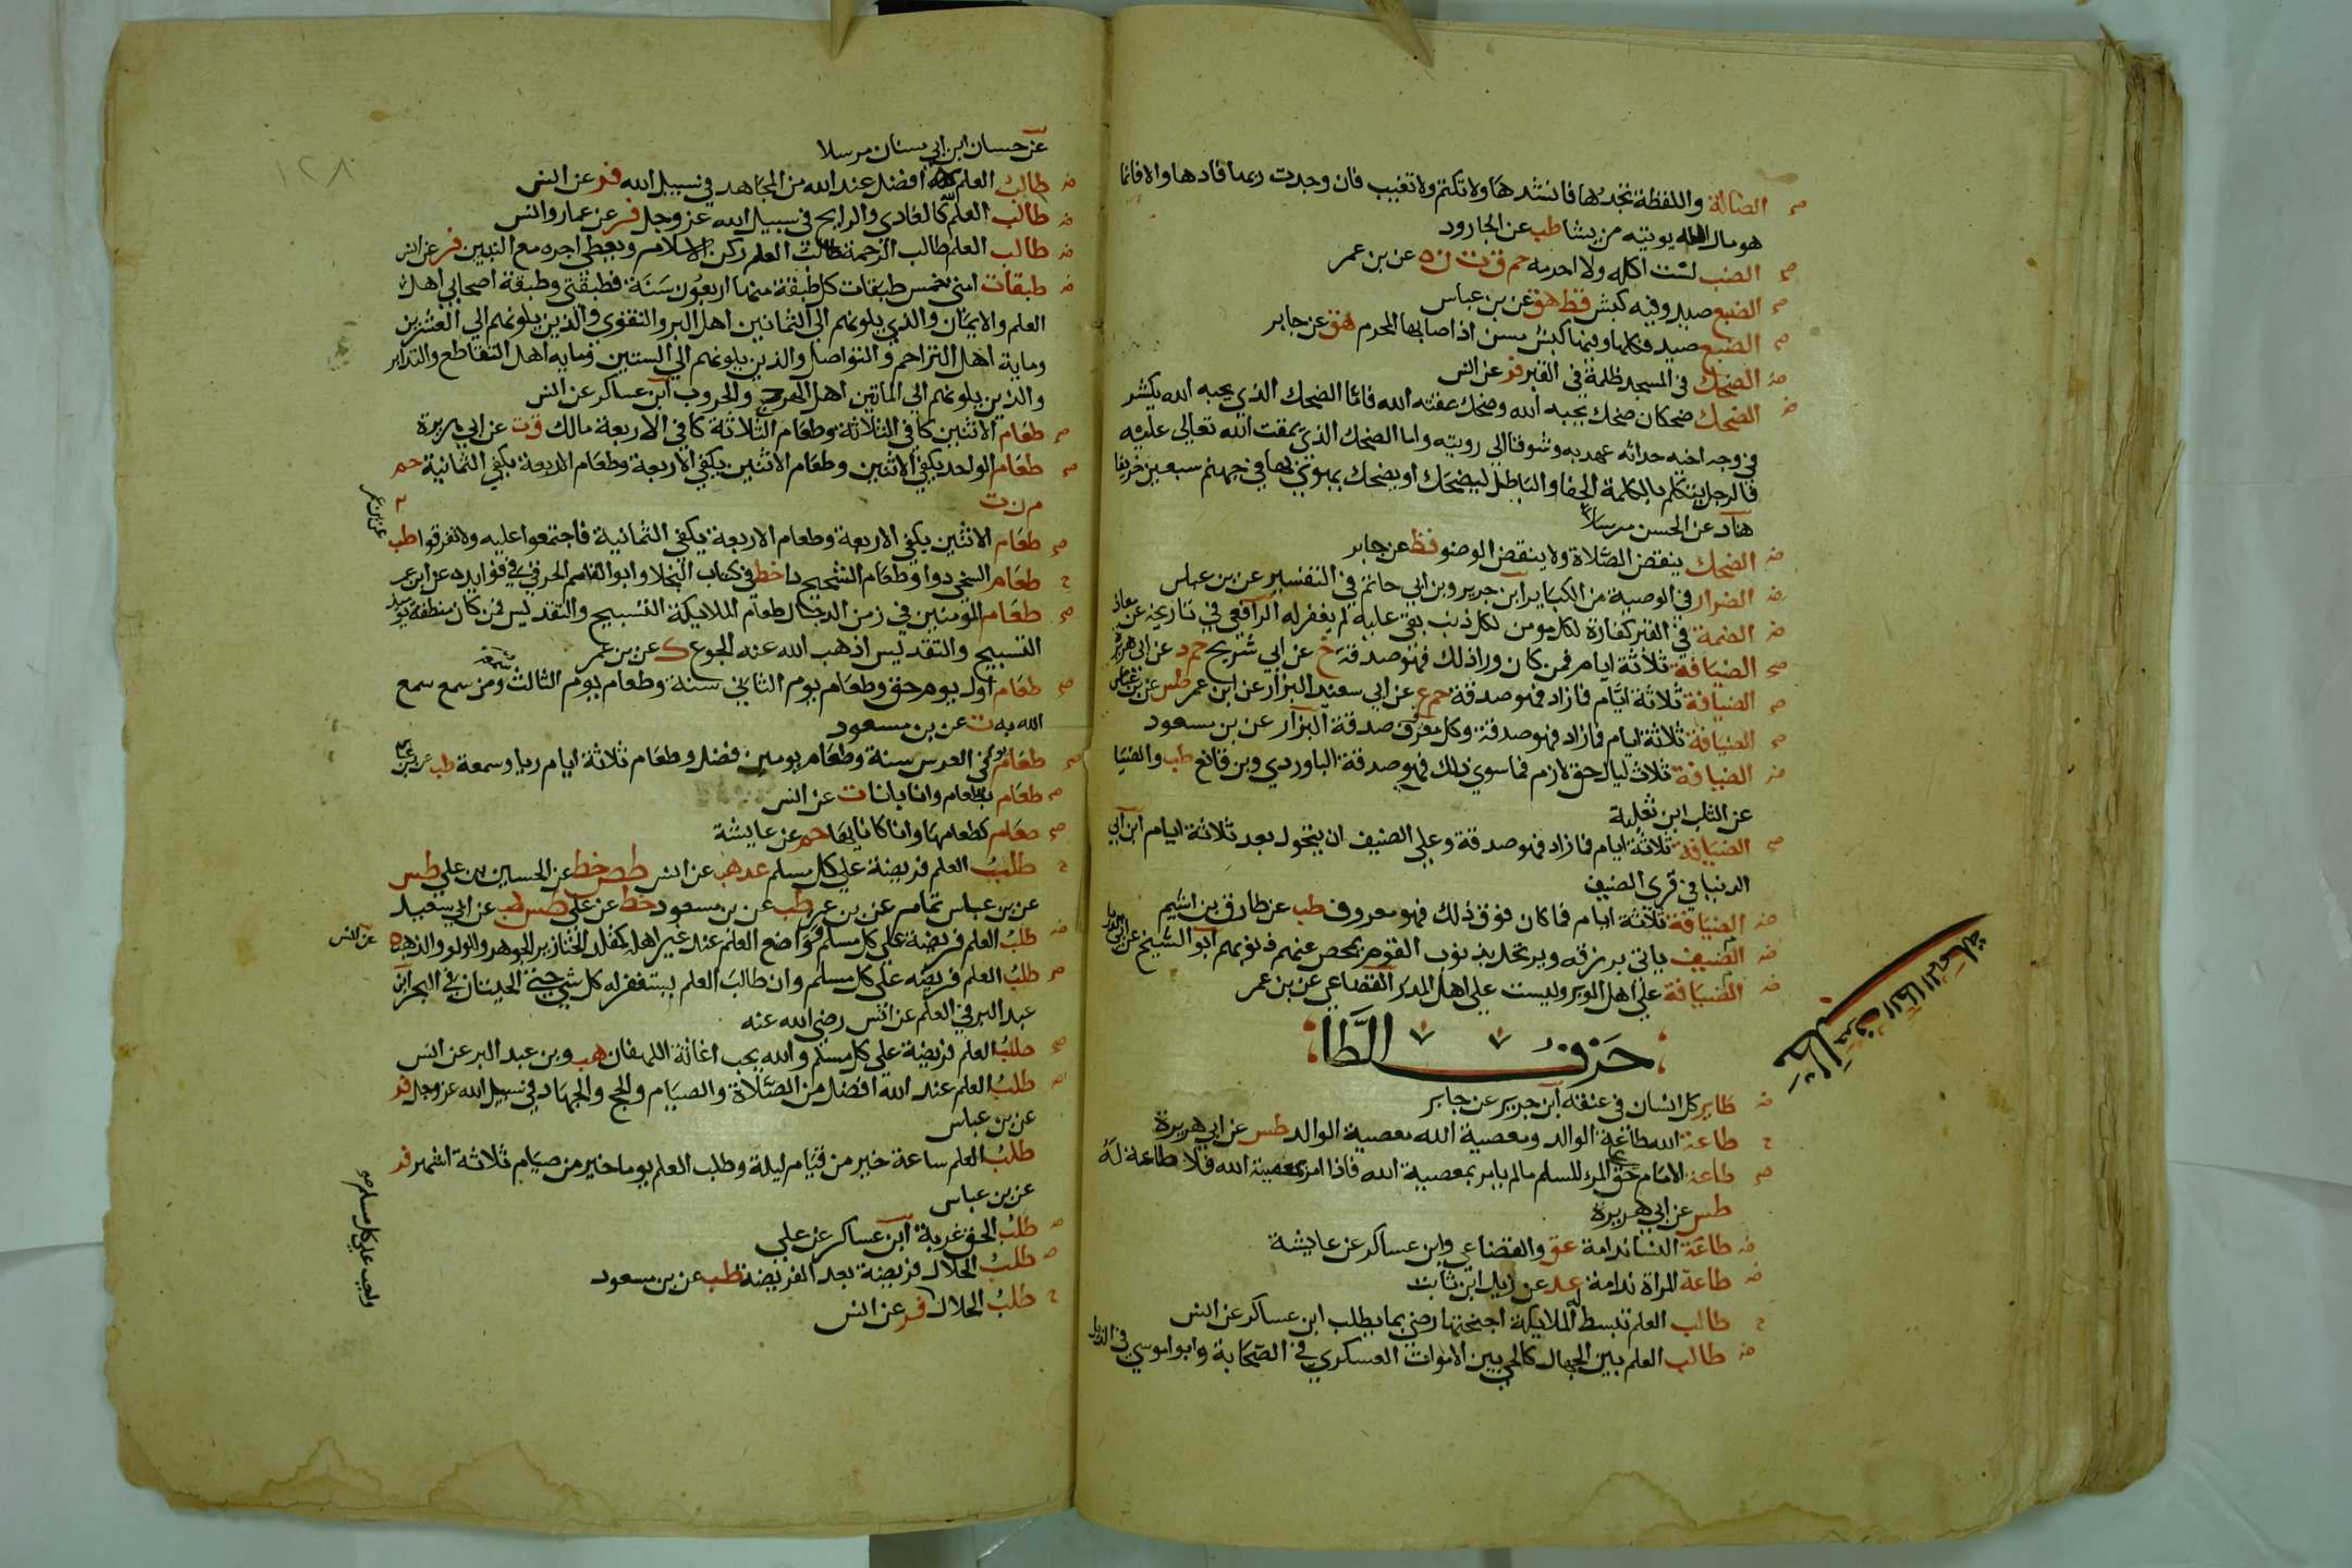 صح الضالة واللقطة تجدها فانشدها ولا تكتم ولا تغيب فان وجدت ربها فادها والا فانما
هو مال الله يوتيه من يشا طب عن الجارود
صح الضب لست اكله ولا احرمه حم ق ت ن ه عن بن عمر
صح الضبع صيد وفيه كبش قط هق عن بن عباس
صح الضبع صيد فكلها وفيها كبش مسن اذا اصابها المحرم هق عن جابر
ض الضحك في المسجد ظلمة في القبر فر عن انس
ض الضحك ضحكان ضحك يحبه الله وضحك يمقته الله فاما الضحك الذي يحبه الله يكشر
في وجه اخيه حداثة عهد به وشوقا الي رويته واما الضحك الذي يمقت الله تعالي عليه
فالرجل يتكلم بالكلمة الجفا والباطل ليضحك او يضحك يهوي بها في جهنم سبعين خريفا
هناد عن الحسن مرسلا
ض الضحك ينقض الصلاة ولا ينقض الوضو قط عن جابر
ض الضرار في الوصية من الكباير ابن جرير وبن ابي حاتم في التفسير عن بن عباس
ض الضمة في القبر كفارة لكل مومن لكل ذنب بقي عليه لم يغفر له الرافعي في تاريخه عن معاذ
صح الضيافة ثلاثة ايام فمن كان ورا ذلك فهو صدقة خ عن ابي شريح حم د عن ابي هريرة
صح الضيافة ثلاثة ايام فما زاد فهو صدقة حم ع عن ابي سعيد البزار عن ابن عمر طس عن بن عباس
صح الضيافة ثلاثة ايام فما زاد فهو صدقة وكل معروف صدقة البزار عن بن مسعود
ض الضيافة ثلاث ليال حق لازم فما سوي ذلك فهو صدقة الباوردي وبن قانع طب والضيا
عن التلب ابن ثعلبة
صح الضيافة ثلاثة ايام فما زاد فهو صدقة وعلي الضيف ان يتحول بعد ثلاثة ايام ابن ابي
الدنيا في قرى الضيف
ض الضيافة ثلاثة ايام فما كان فوق ذلك فهو معروف طب عن طارق بن اشيم
ض الضيف ياتي برزقه ويرتحل بذنوب القوم يمحص عنهم ذنوبهم ابو الشيخ عن ابي الدردا
ض الضيافة علي اهل الوبر وليست علي اهل المدر القضاعي عن بن عمر
حرف الطا
مطلب حرف الطا المهملة
ض طاير كل انسان في عنقه ابن جرير عن جابر
ح طاعة الله طاعة الوالد ومعصية الله معصية الوالد طس عن ابي هريرة
صح طاعة الامام حق علي المرء المسلم مالم يامر بمعصية الله فاذا امر بمعصية الله فلا طاعة له
طس عن ابي هريرة
ض طاعة النسا ندامة عق والقضاعي وابن عساكر عن عايشة
ض طاعة المراة ندامة عد عن زيد ابن ثابت
ح طالب العلم تبسط له الملايكة اجنحتها رضي بما يطلب ابن عساكر عن انس
ض طالب العلم بين الجهال كالحي بين الاموات العسكري في الصحابة وابو موسي في الذيل
١٢٨
عن حسان ابن ابي سنان مرسلا
ض طالب العلم لله افضل عند الله من المجاهد في سبيل الله فر عن انس
ض طالب العلم لله كالغادي والرايح في سبيل الله عز وجل فر عن عمار وانس
ض طالب العلم طالب الرحمة طالب العلم ركن الاسلام ويعطي اجره مع النبيين فر عن انس
ض طبقات امتي خمس طبقات كل طبقة منها اربعون سنة فطبقتي وطبقة اصحابي اهل
العلم والايمان والذي يلونهم الي الثمانين اهل البر والتقوى والذين يلونهم الي العشرين
وماية اهل التراحم والتواصل والذين يلونهم الي الستين وماية اهل التقاطع والتدابر
والذين يلونهم الي الماتين اهل الهرج والحروب ابن عساكر عن انس
صح طعام الاثنين كافي الثلاثة وطعام الثلاثة كافي الاربعة مالك ق ت عن ابي هريرة
صح طعام الواحد يكفي الاثنين وطعام الاثنين يكفي الاربعة وطعام الاربعة يكفي الثمانية حم
م ن ت
صح طعام الاثنين يكفي الاربعة وطعام الاربعة يكفي الثمانية فاجتمعوا عليه ولا تفرقوا طب
عن بن عمر
ح طعام السخي دوا وطعام الشحيح دا خط في كتاب البخلا وابو القاسم الحرفي في فوايده عن ابن عمر
صح طعام المومنين في زمن الدجال طعام الملايكة التسبيح والتقديس فمن كان منطقه يوميذ
التسبيح والتقديس اذهب الله عنه الجوع ك عن بن عمر
صح طعام اول يوم حق وطعام يوم الثاني سنة وطعام يوم الثالث سمعة ومن سمع سمع
الله به ت عن بن مسعود
صح طعام يوم في العرس سنة وطعام يومين فضل وطعام ثلاثة ايام ريا وسمعة طب عن بن عباس
صح طعام بطعام وانا بانا ت عن انس
صح طعام كطعامها وانا كانايها حم عن عايشة
ح طلب العلم فريضة علي كل مسلم عد هب عن انس طص خط عن الحسين بن علي طس
عن بن عباس تمام عن بن عمر طب عن بن مسعود خط عن علي طس هب عن ابي سعيد
ض طلب العلم فريضة علي كل مسلم وواضع العلم عند غير اهله كمقلد الخنازير الجوهر واللولو والذهب ه
عن انس
صح طلب العلم فريضة علي كل مسلم وان طالب العلم يستغفر له كل شي حتي الحيتان في البحر ابن
عبد البر في العلم عن انس رضي الله عنه
صح طلب العلم فريضة علي كل مسلم والله يحب اغاثة اللهفان هب وبن عبد البر عن انس
ض طلب العلم عند الله افضل من الصلاة والصيام والحج والجهاد في سبيل الله عز وجل فر
عن بن عباس
طلب العلم ساعة خير من قيام ليلة وطلب العلم يوما خير من صيام ثلاثة اشهر فر
عن بن عباس
ض طلب الحق غربة ابن عساكر عن علي
ض طلب الحلال فريضة بعد الفريضة طب عن بن مسعود
ح طلب الحلال فر عن انس
واجب علي كل مسلم صح